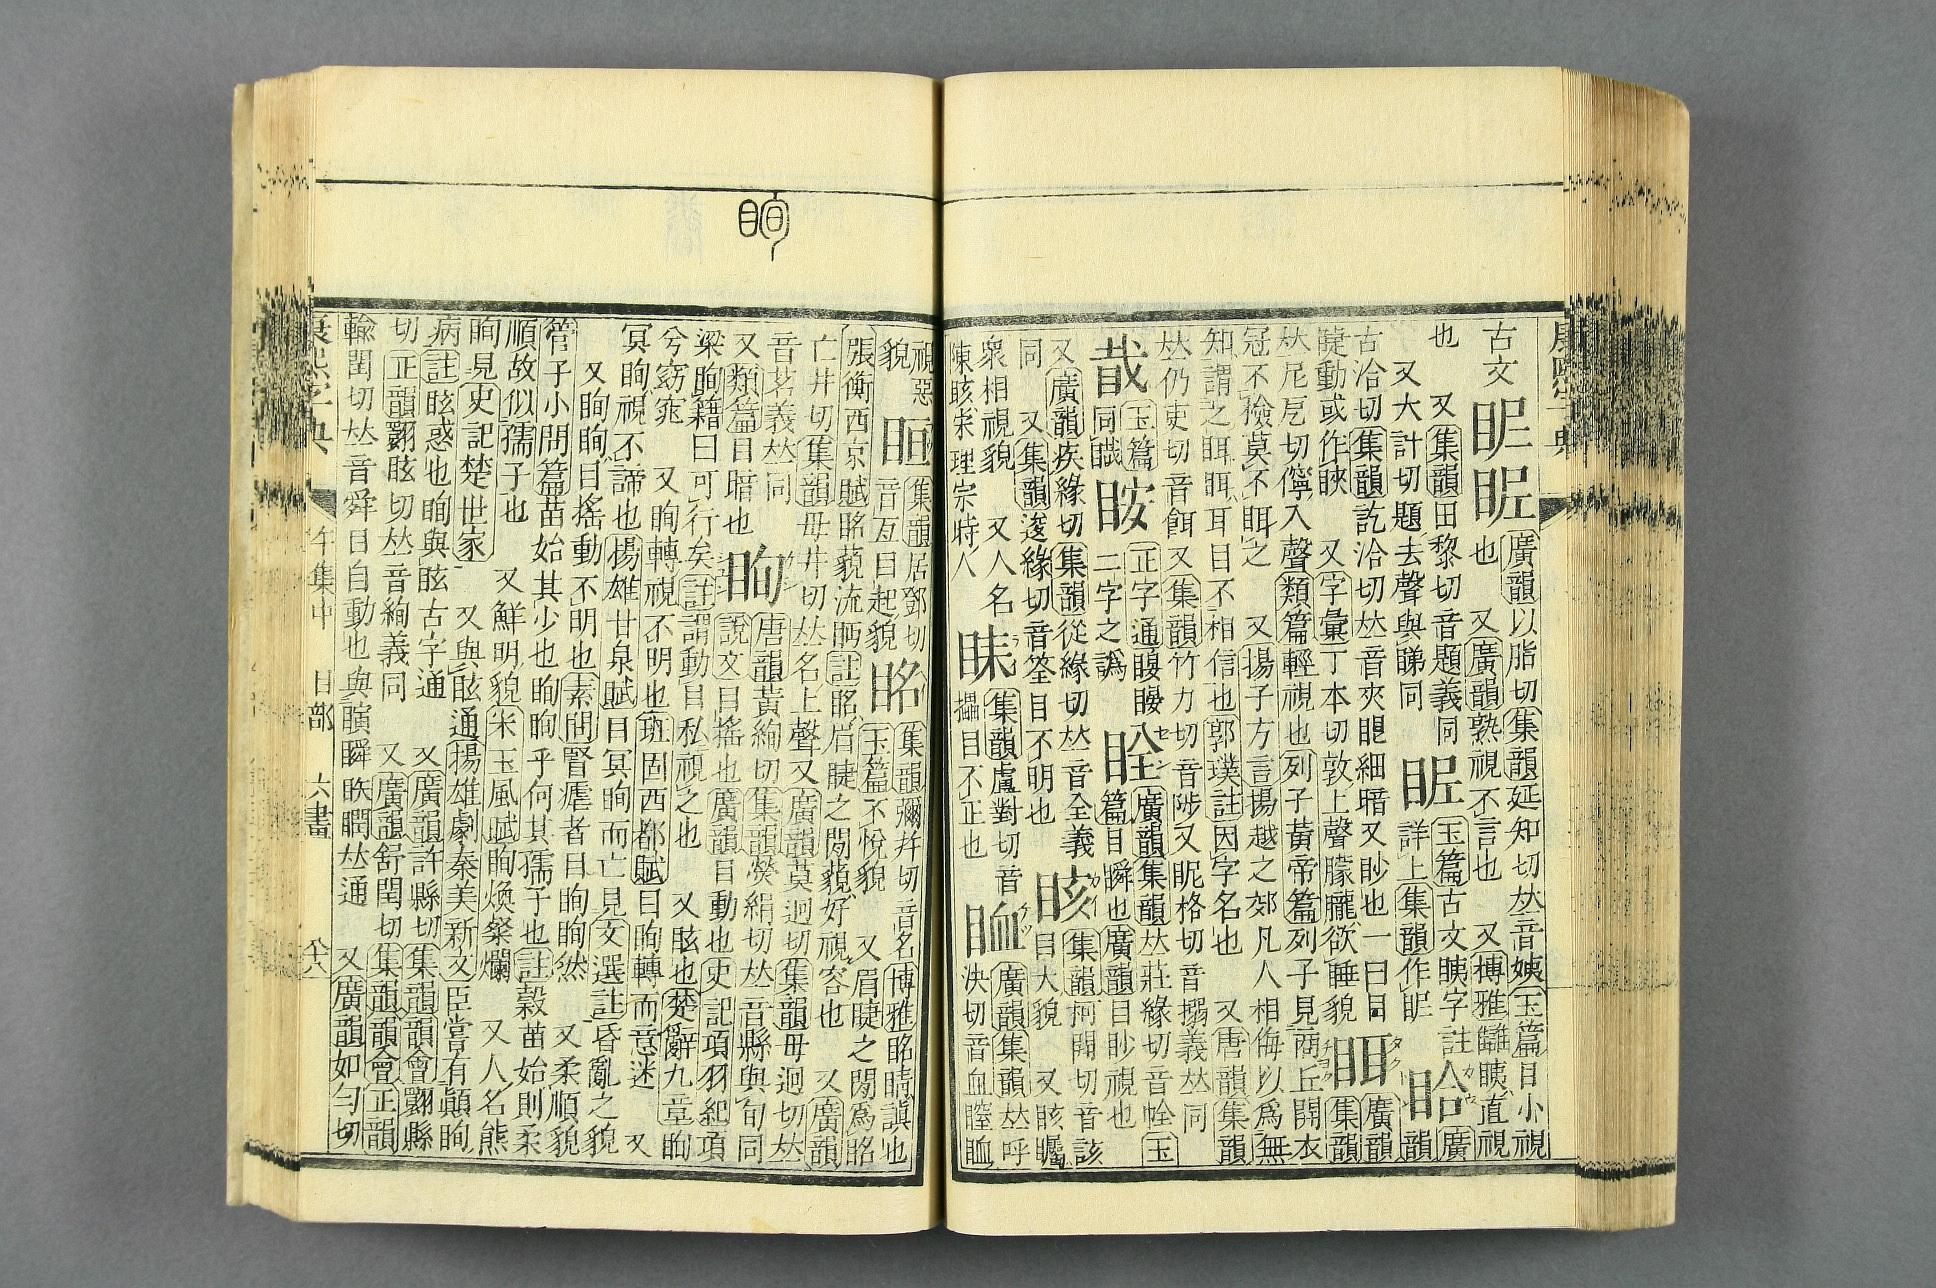 康熙字典
古文𥅓眤
廣韻以脂切集韻延知切𠀤音姨玉篇目小視
也 又廣韻熟視不言也 又博雅眱直視
也 又集韻田黎切音題義同
又大計切題去聲與睇同
眤玉篇古文眱字註
詳上集韻作眤
䀫廣韻
古洽切集韻訖洽切𠀤音夾眼細暗又眇也一曰目
睫動或作䀹 又字彙丁本切敦上聲朦朧欲睡貌
眲廣韻集韻
𠀤尼戹切儜入聲類篇輕視也列子黃帝篇列子見商丘開衣
冠不檢莫不眲之 又揚子方言揚越之郊凡人相侮以為無
知謂之眲眲耳目不相信也郭璞註因字名也 又唐韻集韻
𠀤仍吏切音餌又集韻竹力切音陟又昵格切音搦義𠀤同
玉篇
同職
正字通
二字之譌
廣韻集韻𠀤莊緣切音恮玉
篇目瞬也廣韻目眇視也
又廣韻疾緣切集韻從緣切𠀤音全義
同 又集韻逡緣切音筌目不明也
䀭集韻柯開切音該
目大貌 又䀭矚
眾相視貌 又人名
陳䀭宋理宗時人
集韻盧對切音
攝目不正也
䀏廣韻集韻𠀤呼
決切音血瞠䀏
眴
視惡
貌
集韻居鄧切
音亙目起貌
眳集韻彌幷切音名博雅眳睛諟也
玉篇不悅貌 又眉睫之閒為眳
張衡西京賦眳藐流眄註眳眉睫之閒藐好視容也 又廣韻
亡井切集韻母井切𠀤名上聲又廣韻莫迥切集韻母迥切𠀤
音茗義𠀤同
又類篇目暗也
眴唐韻黃絢切集韻熒絹切𠀤音縣與旬同
說文目搖也廣韻目動也史記項羽紀項
梁眴籍曰可行矣註謂動目私視之也 又眩也楚辭九章眴
兮窈窕 又眴轉視不明也班固西都賦目眴轉而意迷 又
冥眴視不諦也揚雄甘泉賦目冥眴而亡見文選註昏亂之貌
又眴眴目搖動不明也素問腎瘧者目眴眴然 又柔順貌
管子小問篇苗始其少也眴眴乎何其孺子也註穀苗始則柔
順故似孺子也 又鮮明貌宋玉風賦眴煥粲爛 又人名熊
眴見史記楚世家 又與眩通揚雄劇秦美新文臣嘗有顚眴
病註眩惑也眴與眩古字通 又廣韻許縣切集韻韻會翾縣
切正韻翾眩切𠀤音絢義同 又廣韻舒閏切集韻韻會正韻
輸閏切𠀤音舜目自動也與瞚瞬眣瞤𠀤通 又廣韻如勻切
康熙字典 午集中 目部 六書 十八